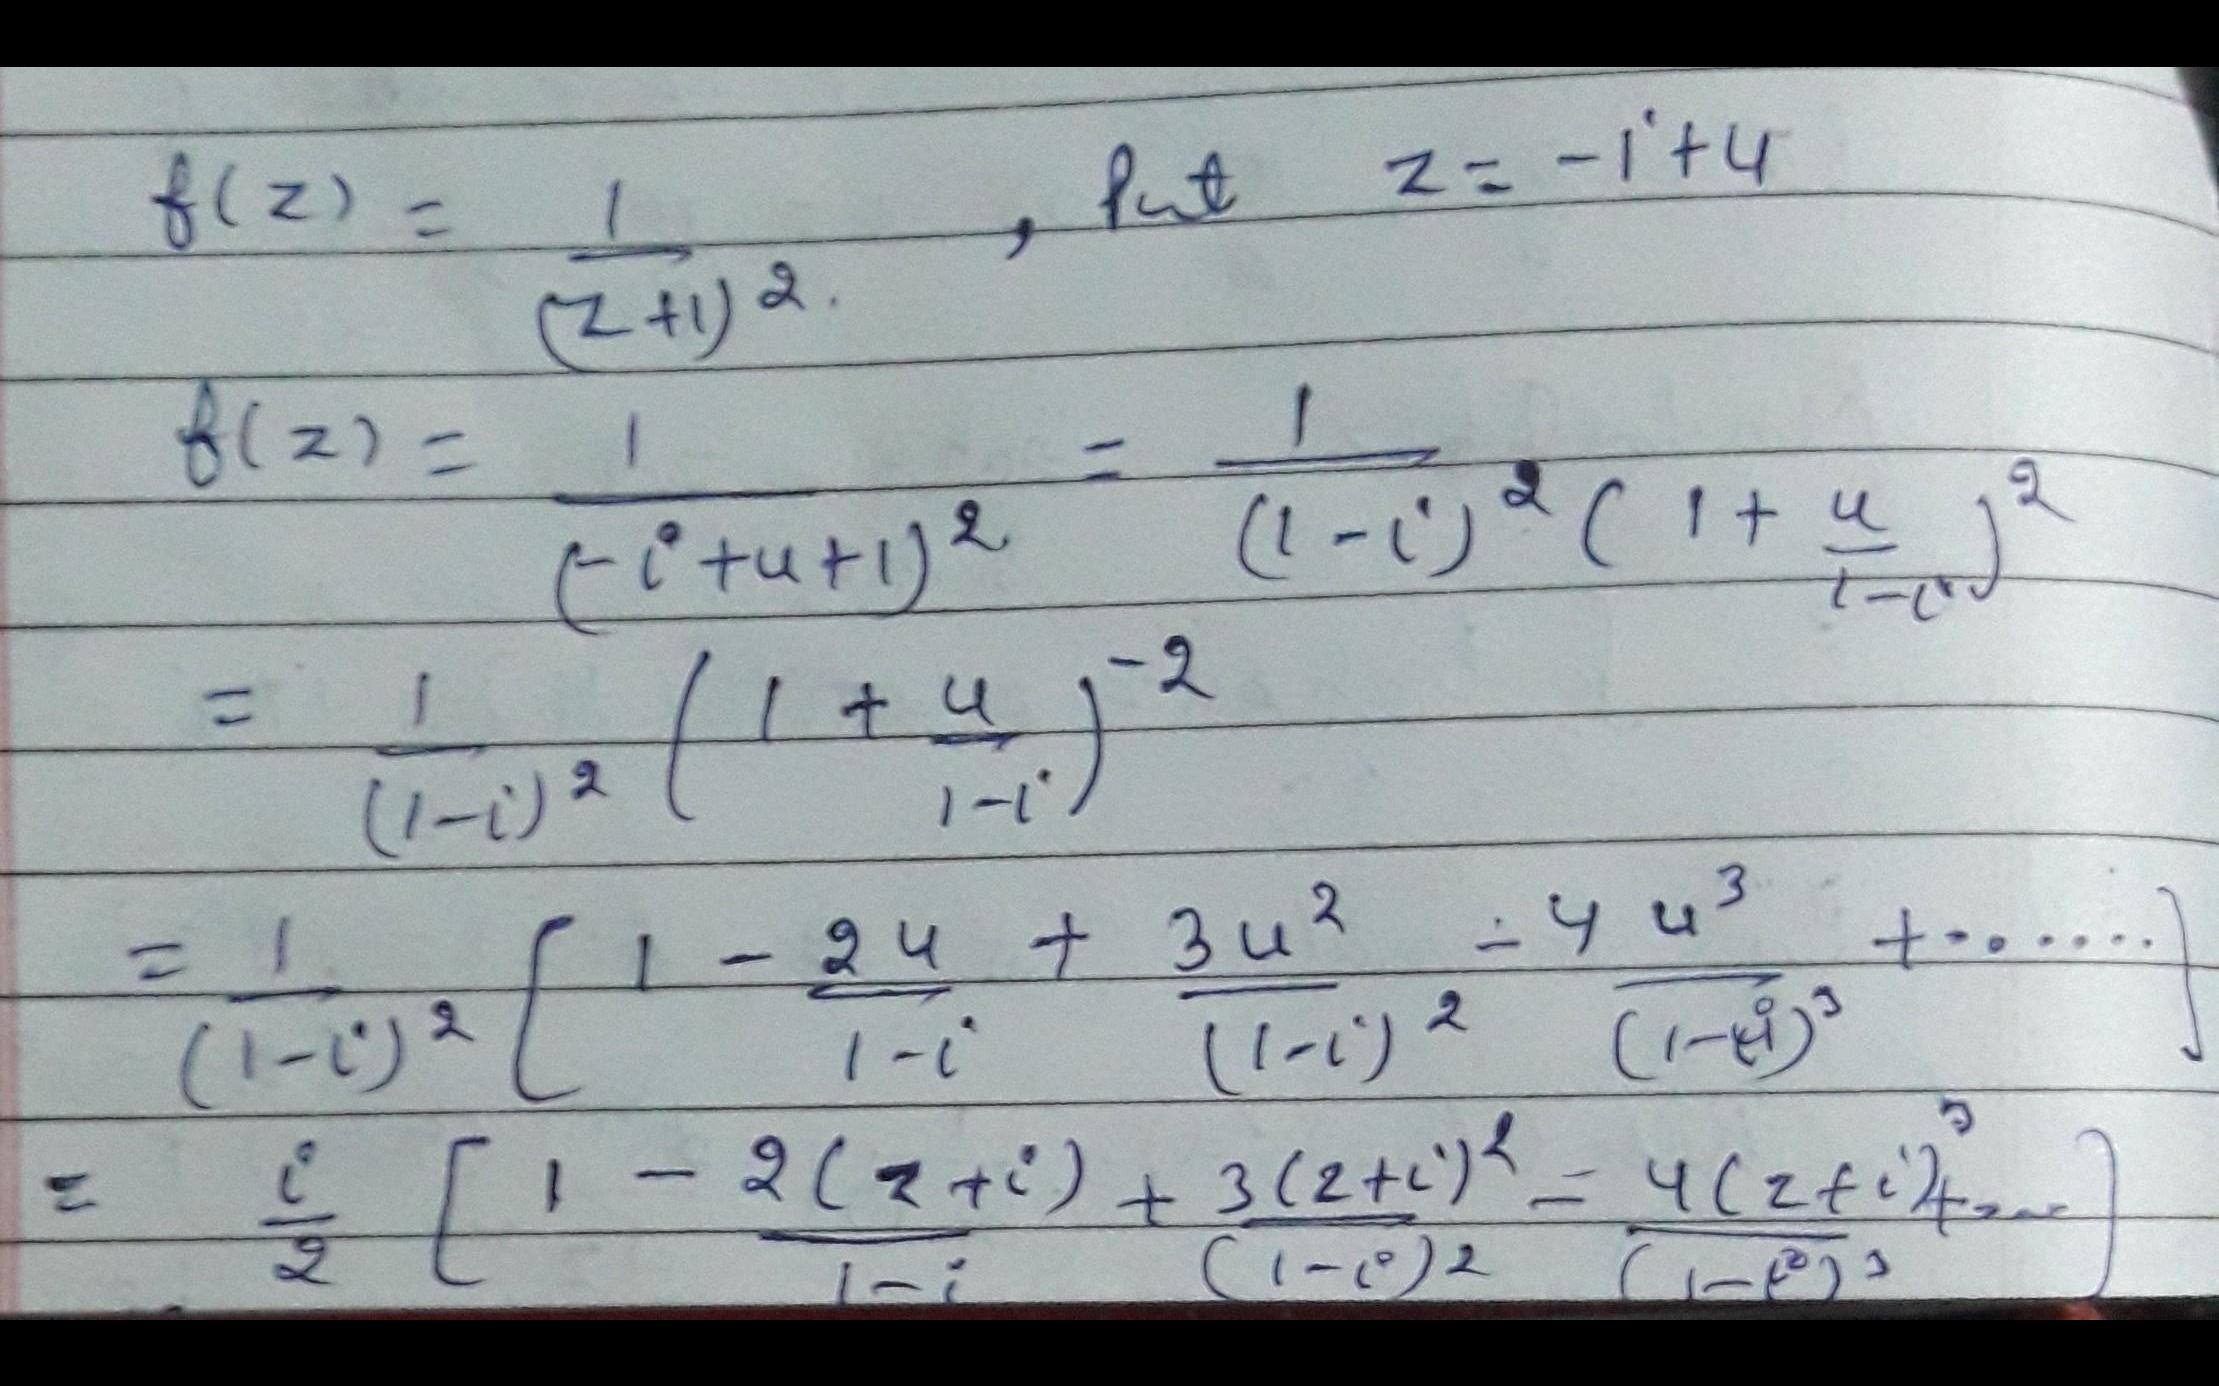 f(z) = 1/(z+1)². , Put z = -i+u
f(z) = 1/(-i+u+1)² = 1/((1-i)² (1 + u/(1-i))²)
= 1/(1-i)² (1 + u/(1-i))⁻²
= 1/(1-i)² [1 - 2u/(1-i) + 3u²/(1-i)² - 4u³/(1-i)³ + .......]
= i/2 [1 - 2(z+i)/(1-i) + 3(z+i)²/(1-i)² - 4(z+i)³/(1-i)³ + ....]